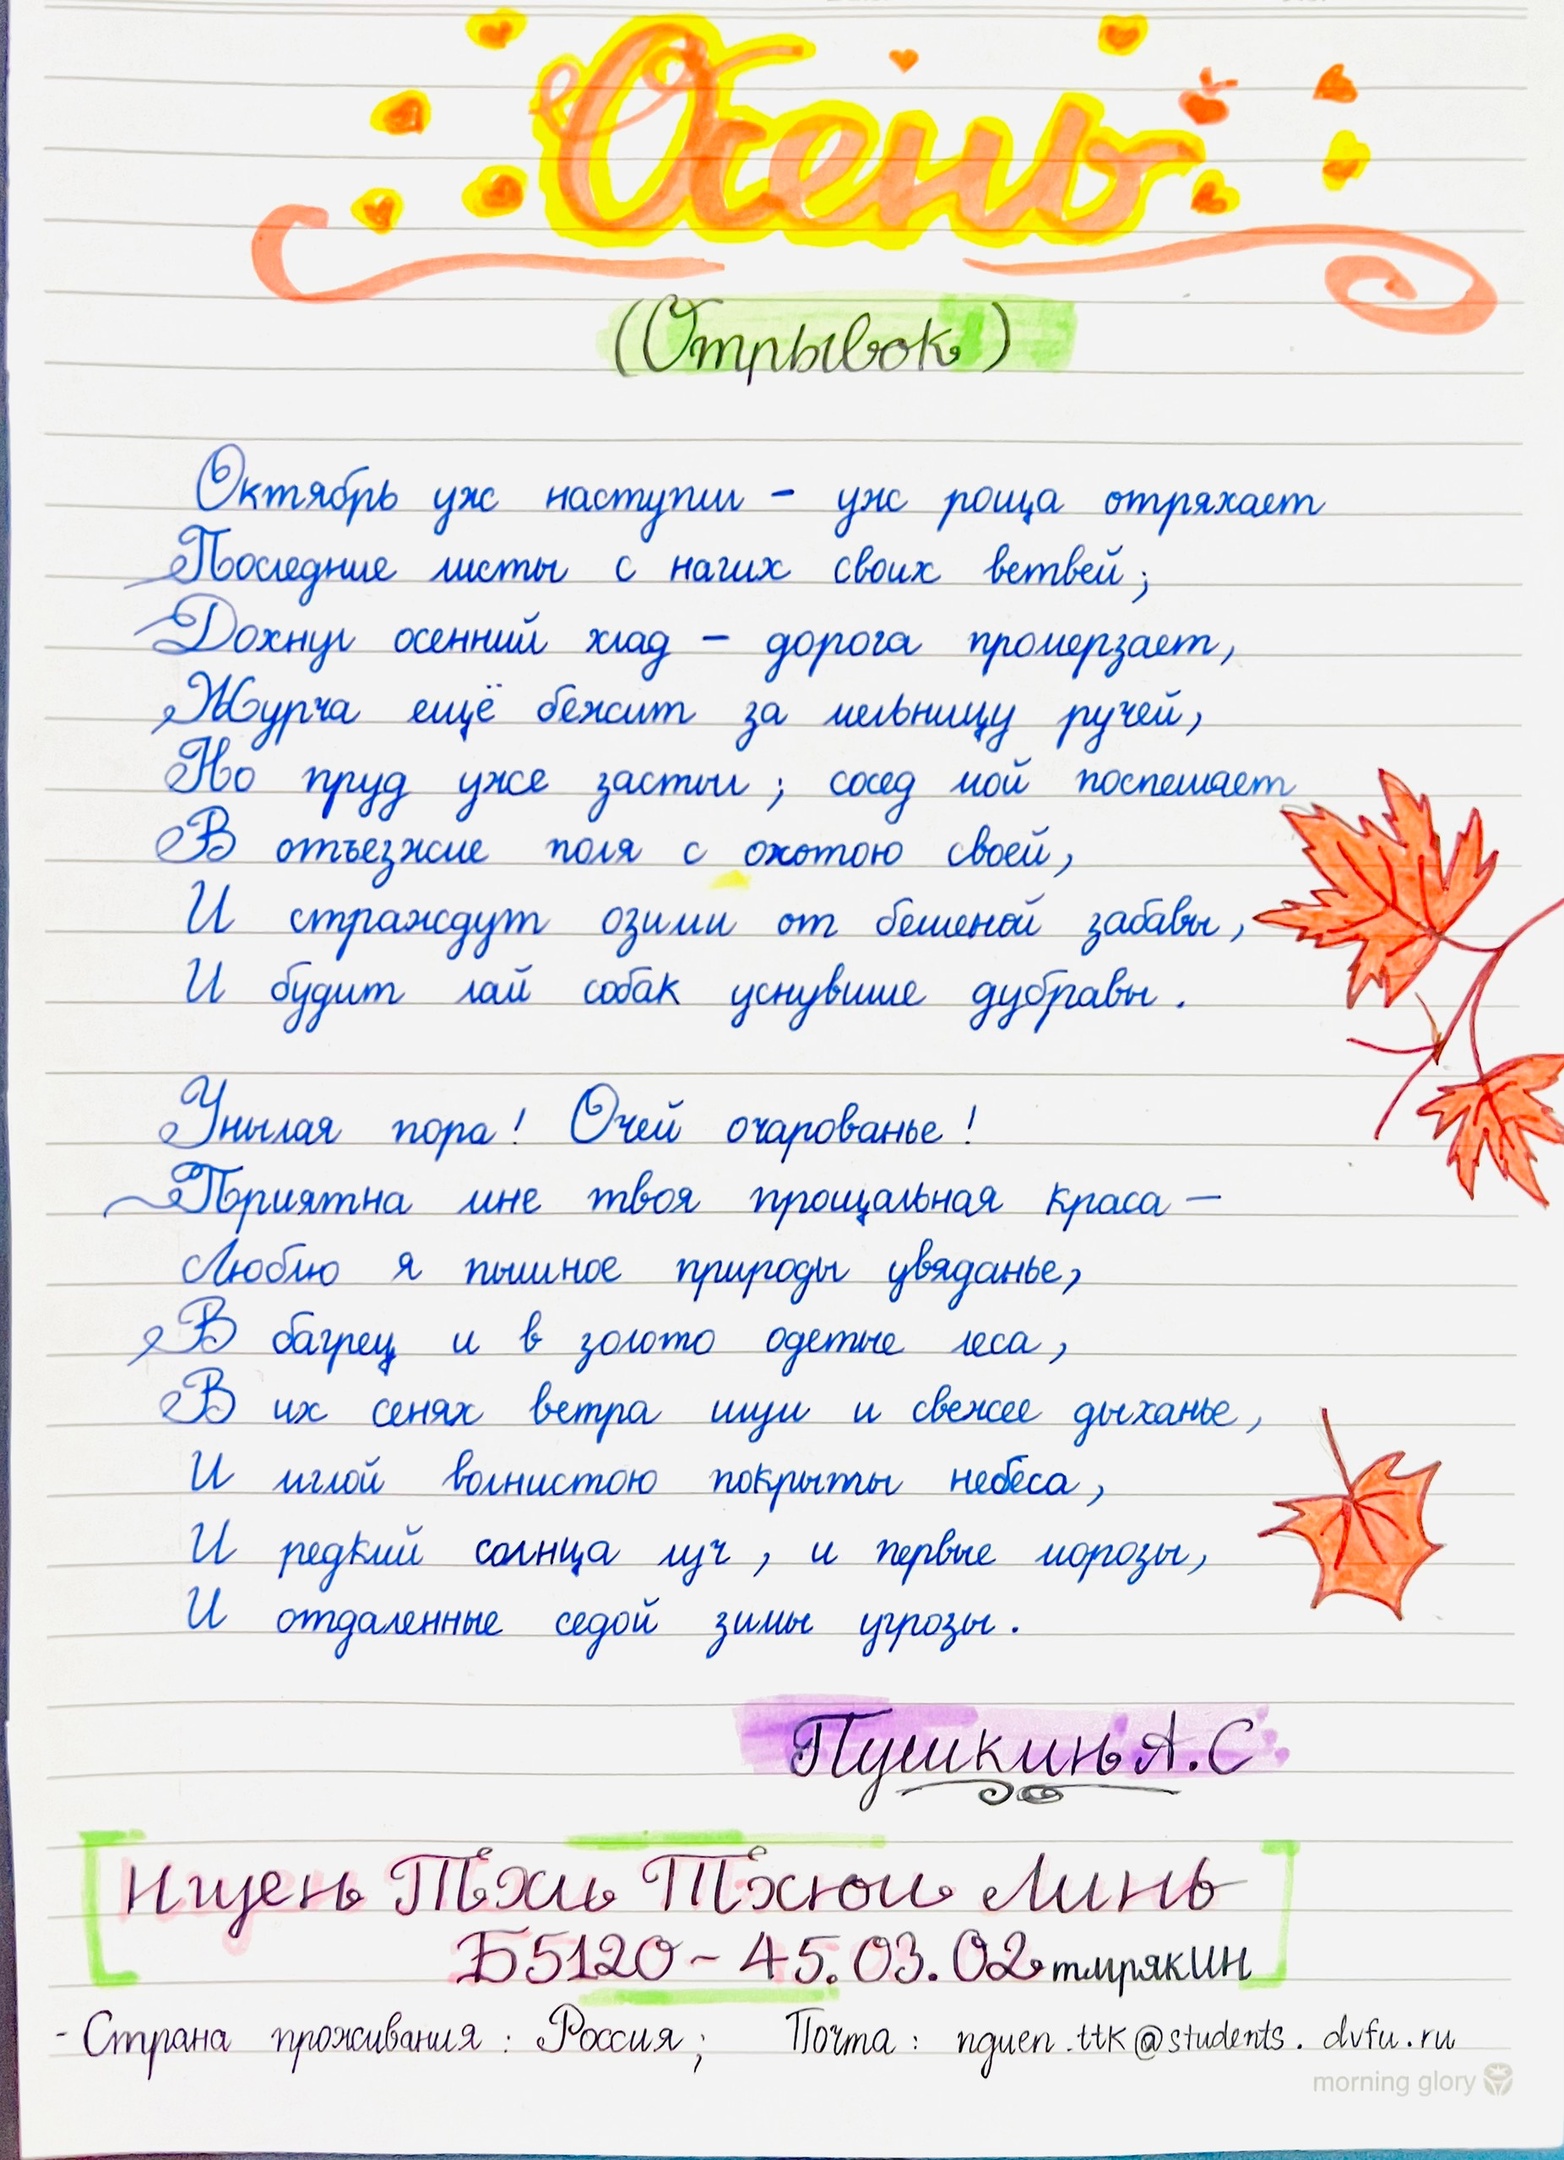 Осень
(Отрывок)
Октябрь уж наступил - уж роща отряхает
Последние листы с нагих своих ветвей;
Дохнул осенний хлад - дорога промерзает,
Журча ещё бежит за мельницу ручей,
Но пруд уже застыл; сосед мой поспешает
В отъезжие поля с охотою своей,
И страждут озими от бешеной забавы,
И будит лай собак уснувшие дубравы.
Унылая пора! Очей очарованье!
Приятна мне твоя прощальная краса -
Люблю я пышное природы увяданье,
В багрец и в золото одетые леса,
В их сенях ветра шум и свежее дыханье,
И мглой волнистою покрыты небеса,
И редкий солнца луч, и первые морозы,
И отдаленные седой зимы угрозы.
Пушкин А.С
Нгуен Тхи Тхюи Линь
Б5120-45.03.02тмрякин
- Страна проживания: Россия; Почта: nguen.ttk@students.dvfu.ru
morning glory